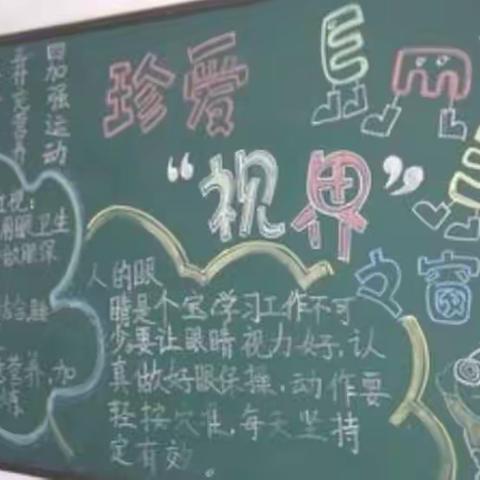 珍爱
“视界”
之窗
加强运动
补充营养
卫生
眼保
人的眼
睛是个宝,学习工作不可
少,要让眼睛视力好,认
真做好眼保操,动作要
轻按穴位,每天坚持
定有效。
营养,加